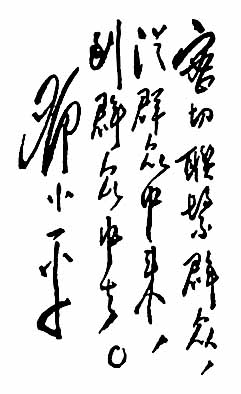 密切聯繫群众，
从群众中来，
到群众中去。
邓小平